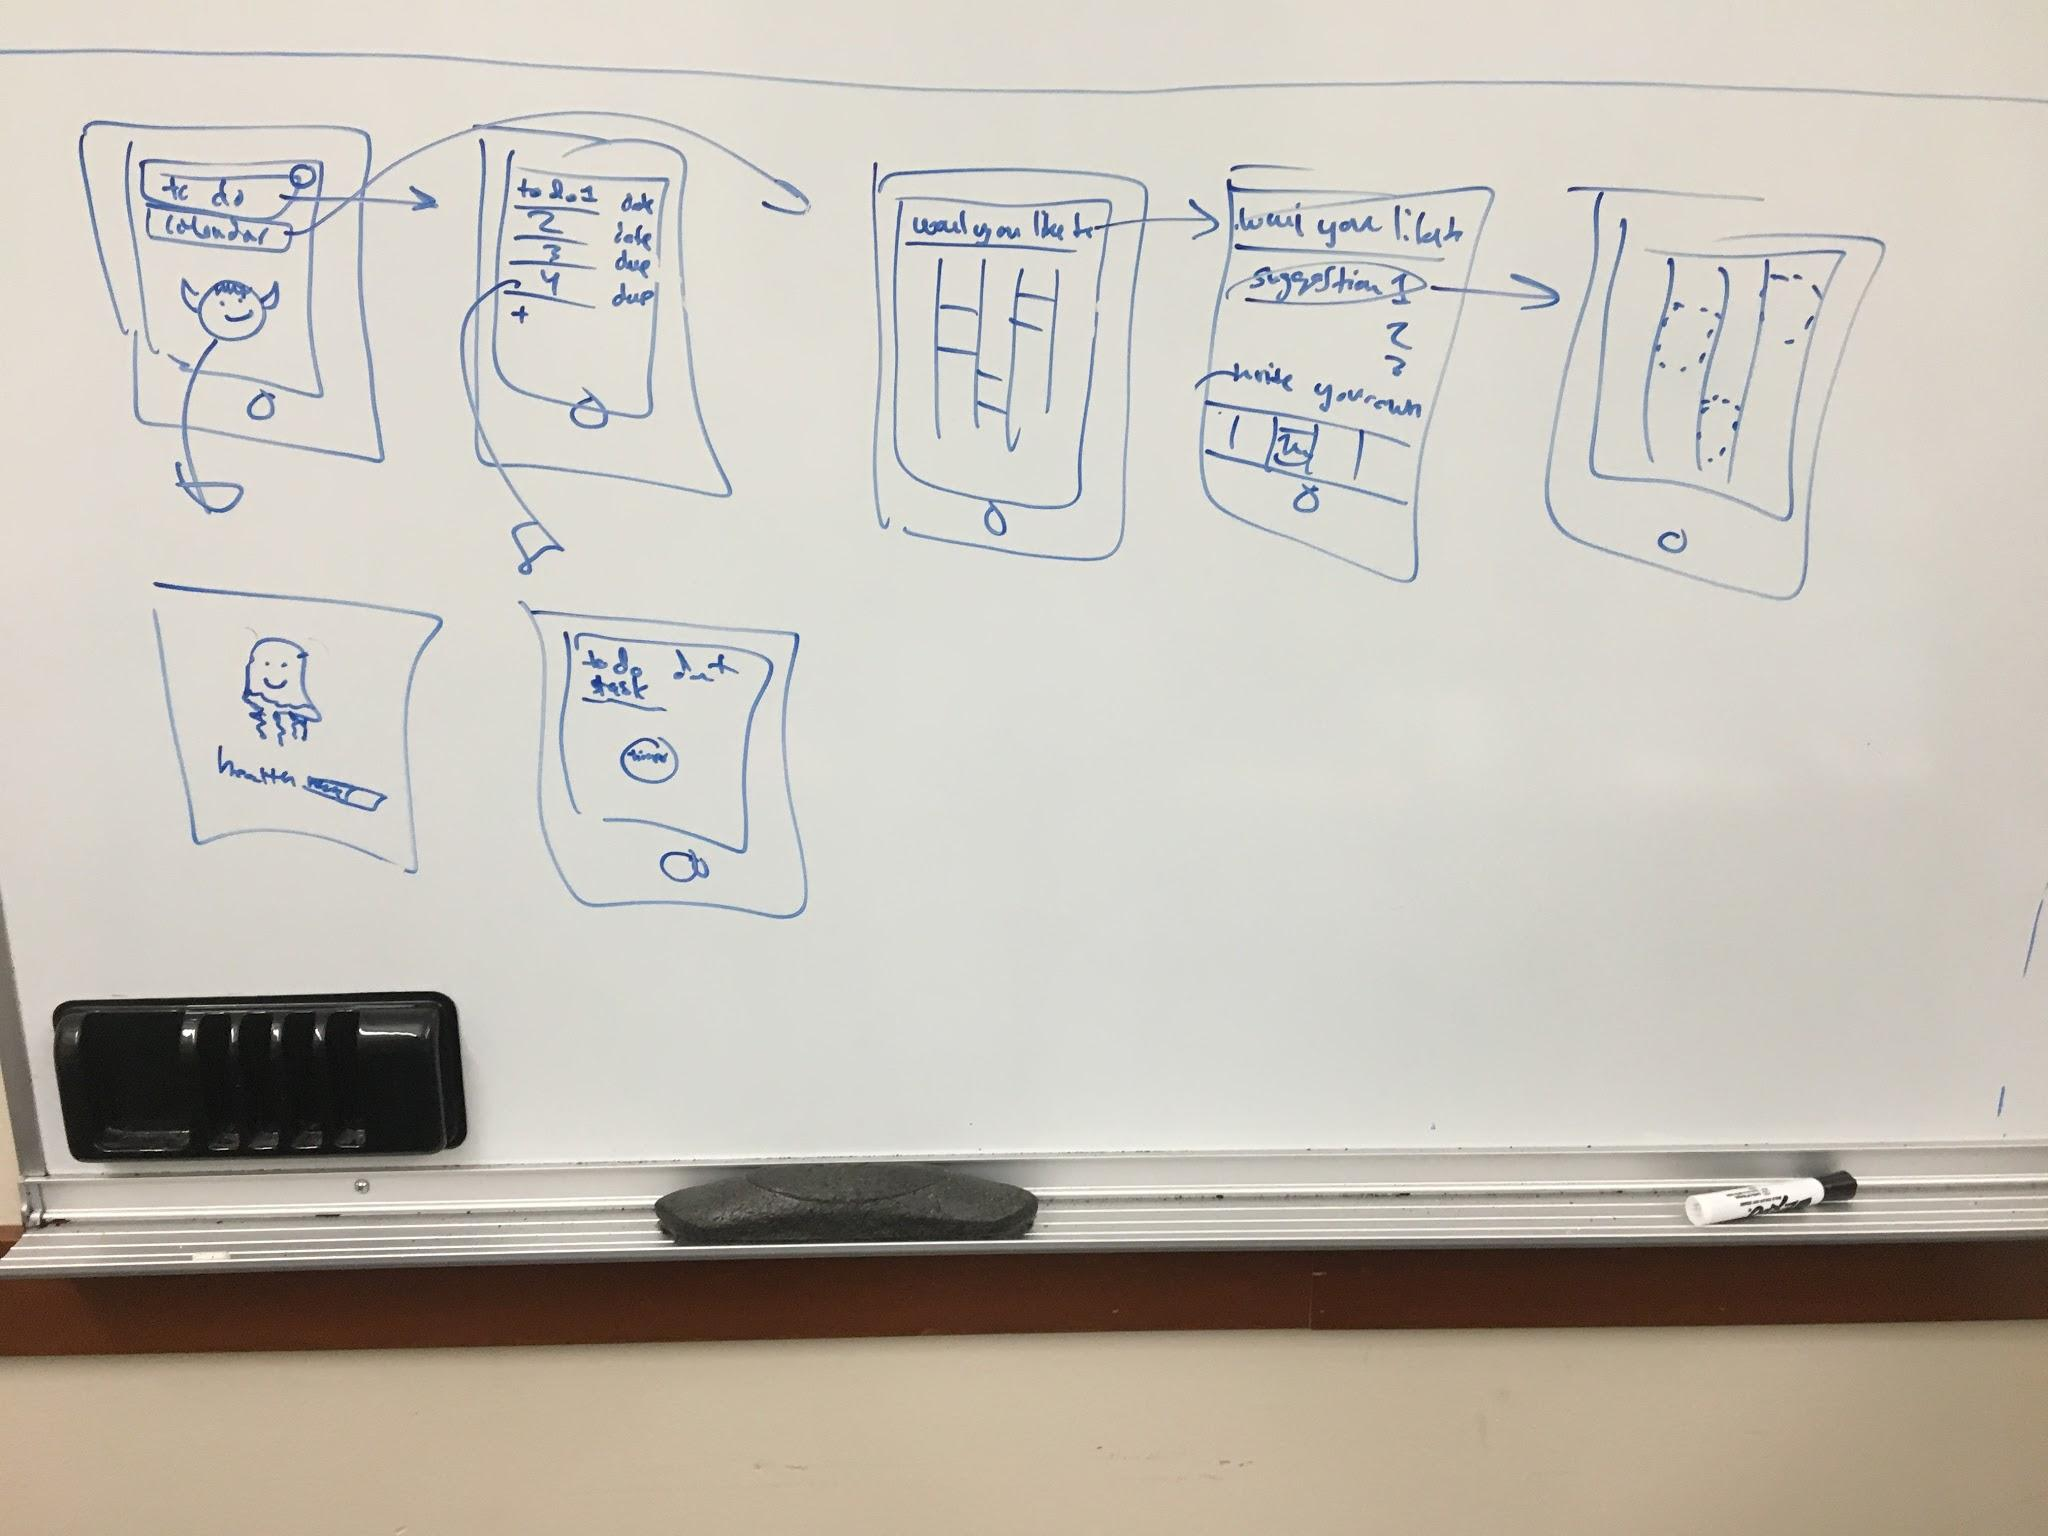 to do
calendar
to do 1 date
2 date
3 due
4 due
+
would you like to
would you like to
suggestion 1
2
3
write your own
health
to do
task
timer
EXPO